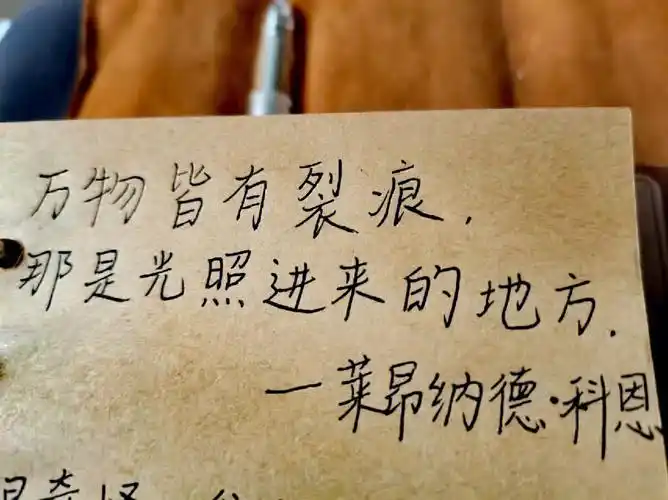 万物皆有裂痕.
那是光照进来的地方.
—莱昂纳德·科恩